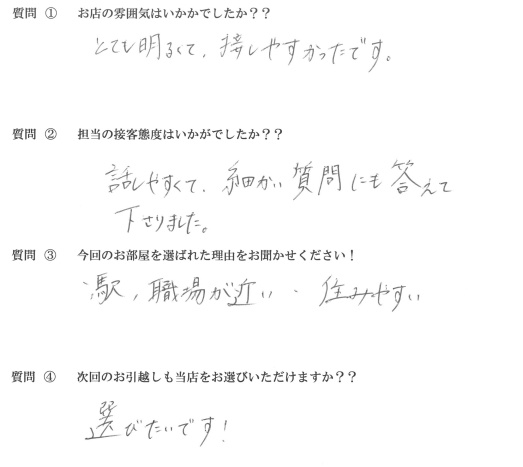 質問 ① お店の雰囲気はいかかでしたか？？
とても明るくて、接しやすかったです。
質問 ② 担当の接客態度はいかがでしたか？？
話しやすくて、細かい質問にも答えて
下さりました。
質問 ③ 今回のお部屋を選ばれた理由をお聞かせください！
駅、職場が近い・住みやすい
質問 ④ 次回のお引越しも当店をお選びいただけますか？？
選びたいです！